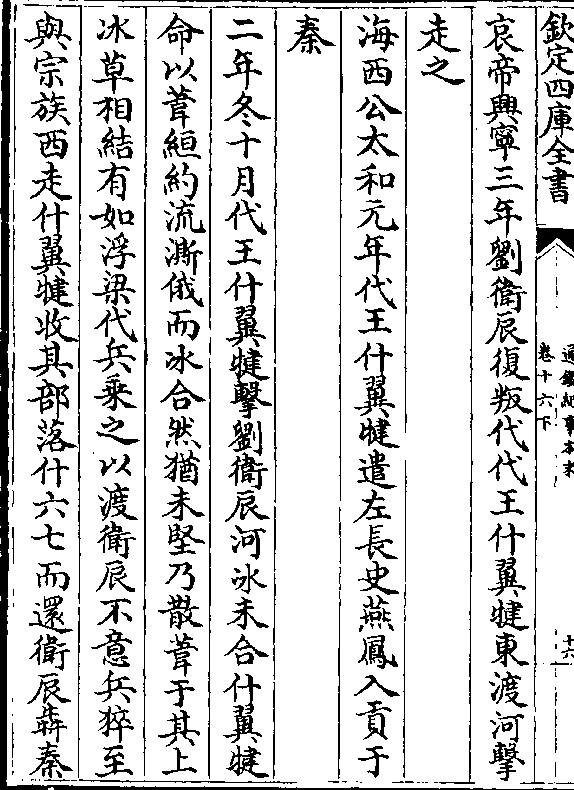 欽定四庫全書
通鑑紀事本末
卷十六下
十六
哀帝興寧三年劉衛辰復叛代代王什翼犍東渡河擊
走之
海西公太和元年代王什翼犍遣左長史燕鳳入貢于
秦
二年冬十月代王什翼犍擊劉衛辰河冰未合什翼犍
命以葦絙約流澌俄而冰合然猶未堅乃散葦于其上
冰草相結有如浮梁代兵乗之以渡衛辰不意兵猝至
與宗族西走什翼犍收其部落什六七而還衛辰犇秦